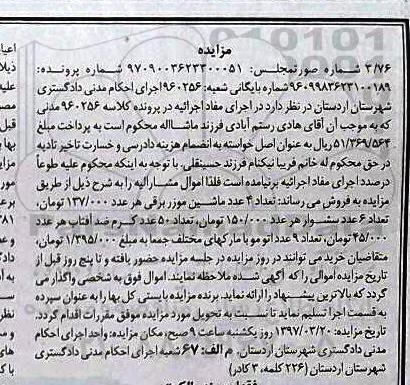 مزایده
۳/۷۶ شماره صورتمجلس: ۹۷۰۹۰۰۳۶۲۳۳۰۰۰۵۱ شماره پرونده:
۹۶۰۹۹۸۳۶۲۳۱۰۰۱۸۹ شماره بایگانی شعبه: ۹۶۰۲۵۶ اجرای احکام مدنی دادگستری
شهرستان اردستان در نظر دارد در اجرای مفاد اجرائیه در پرونده کلاسه ۹۶۰۲۵۶ مدنی
که به موجب آن آقای هادی رستم آبادی فرزند ماشااله محکوم است به پرداخت مبلغ
۵۱/۳۶۹/۵۶۴ ریال به عنوان اصل خواسته به انضمام هزینه دادرسی و خسارت تاخیر تادیه
در حق محکوم له خانم فریبا نیکنام فرزند حسینقلی. با توجه به اینکه محکوم علیه طوعاً
درصدد اجرای مفاد اجرائیه برنیامده است فلذا اموال مشارالیه را به شرح ذیل از طریق
مزایده به فروش می رساند: تعداد ۴ عدد ماشین موزر برقی هر عدد ۱۳۷/۰۰۰ تومان،
تعداد ۶ عدد سشوار هر عدد ۱۵۰/۰۰۰ تومان، تعداد ۵۰ عدد کرم ضد آفتاب هر عدد
۴۵/۰۰۰ تومان، تعداد ۹ عدد اتو مو با مارکهای مختلف جمعا به مبلغ ۱/۳۹۵/۰۰۰ تومان.
متقاضیان خرید می توانند در روز مزایده در جلسه مزایده حضور یافته و تا پنج روز قبل از
تاریخ مزایده اموالی را که آگهی شده ملاحظه نمایند. اموال فوق به شخصی واگذار می
گردد که بالاترین پیشنهاد را ارائه نماید. برنده مزایده بایستی کل بها را به عنوان سپرده
به قسمت اجرا تسلیم نماید تا نسبت به تحویل مورد مزایده موفق مقررات اقدام گردد.
تاریخ مزایده: ۱۳۹۷/۰۳/۲۰ روز یکشنبه ساعت ۹ صبح، مکان مزایده: واحد اجرای احکام
مدنی دادگستری شهرستان اردستان. م الف: ۶۷ شعبه اجرای احکام مدنی دادگستری
شهرستان اردستان (۲۲۶ کلمه، ۳ کادر)